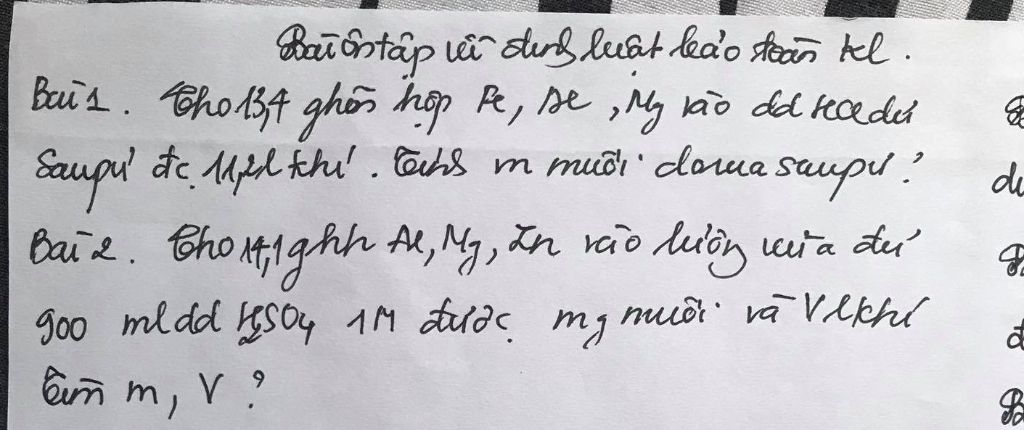 Bài ôn tập về định luật bảo toàn kl.
Bài 1. Cho 13,4 g hỗn hợp Fe, Al, Mg vào dd HCl dư
Sau pứ đc 11,2l khí. Tính m muối thu sau pứ?
Bài 2. Cho 14,1g hh Al, Mg, Zn vào lượng vừa đủ
900 ml dd H2SO4 1M được m g muối và V l khí
Tìm m, V?